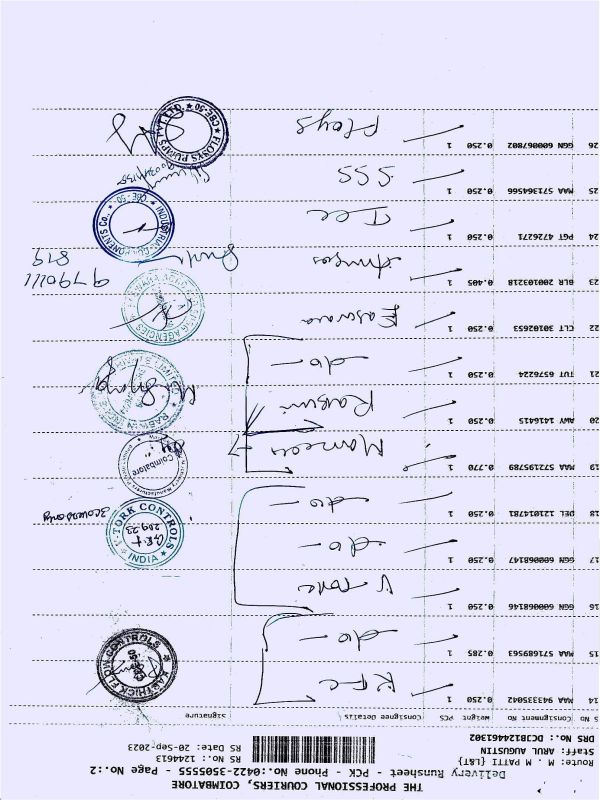 THE PROFESSIONAL COURIERS, COIMBATORE
Delivery Runsheet - PCK - Phone No:0422-3505555 - Page No.:2
Route: M . M PATTI {L&T}
RS No.: 1244613
Staff: ARUL AUGUSTIN
RS Date: 20-Sep-2023
DRS No.: DCJB124461302
S No Consignment No Weight PCS Consignee Details Signature
14 MAA 943335042 0.250 1 KFC
KARTHICK FLOW CONTROLS
15 MAA 571689563 0.285 1 -do-
16 GGN 600068146 0.250 1 V Tork
17 GGN 600068147 0.250 1 -do-
V-TORK CONTROLS
INDIA
18 DEL 121014781 0.250 1 -do-
19 MAA 572195789 0.770 1
Coimbatore
20 AWY 1416415 0.250 1 Rabuni
21 TUT 6576224 0.250 1 -do-
22 CLT 30102653 0.250 1 Easwara
AGENCIES
23 BLR 200103218 0.405 1
979011
819
24 PGT 4726271 0.250 1 Icc
INDUSTRIAL COMPONENTS Co. CBE-50
25 MAA 571364566 0.250 1 SSS
26 GGN 600067802 0.250 1 Floys
FLOSYS PUMPS PVT. LTD. CBE-50